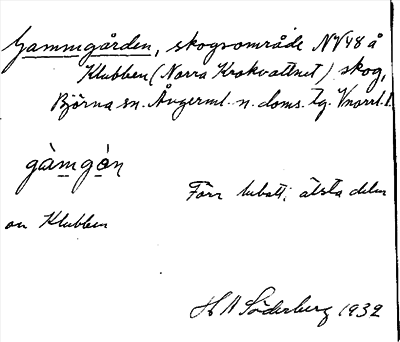 Gammgården, skogsområde NV48 å
Klubben (Norra Krokvattnet) skog,
Björna sn. Ångerml. n. doms. tg. Vnorrl. l.
gàmgòn
Förr bebott; älsta delen
av Klubben
H A Söderberg 1932